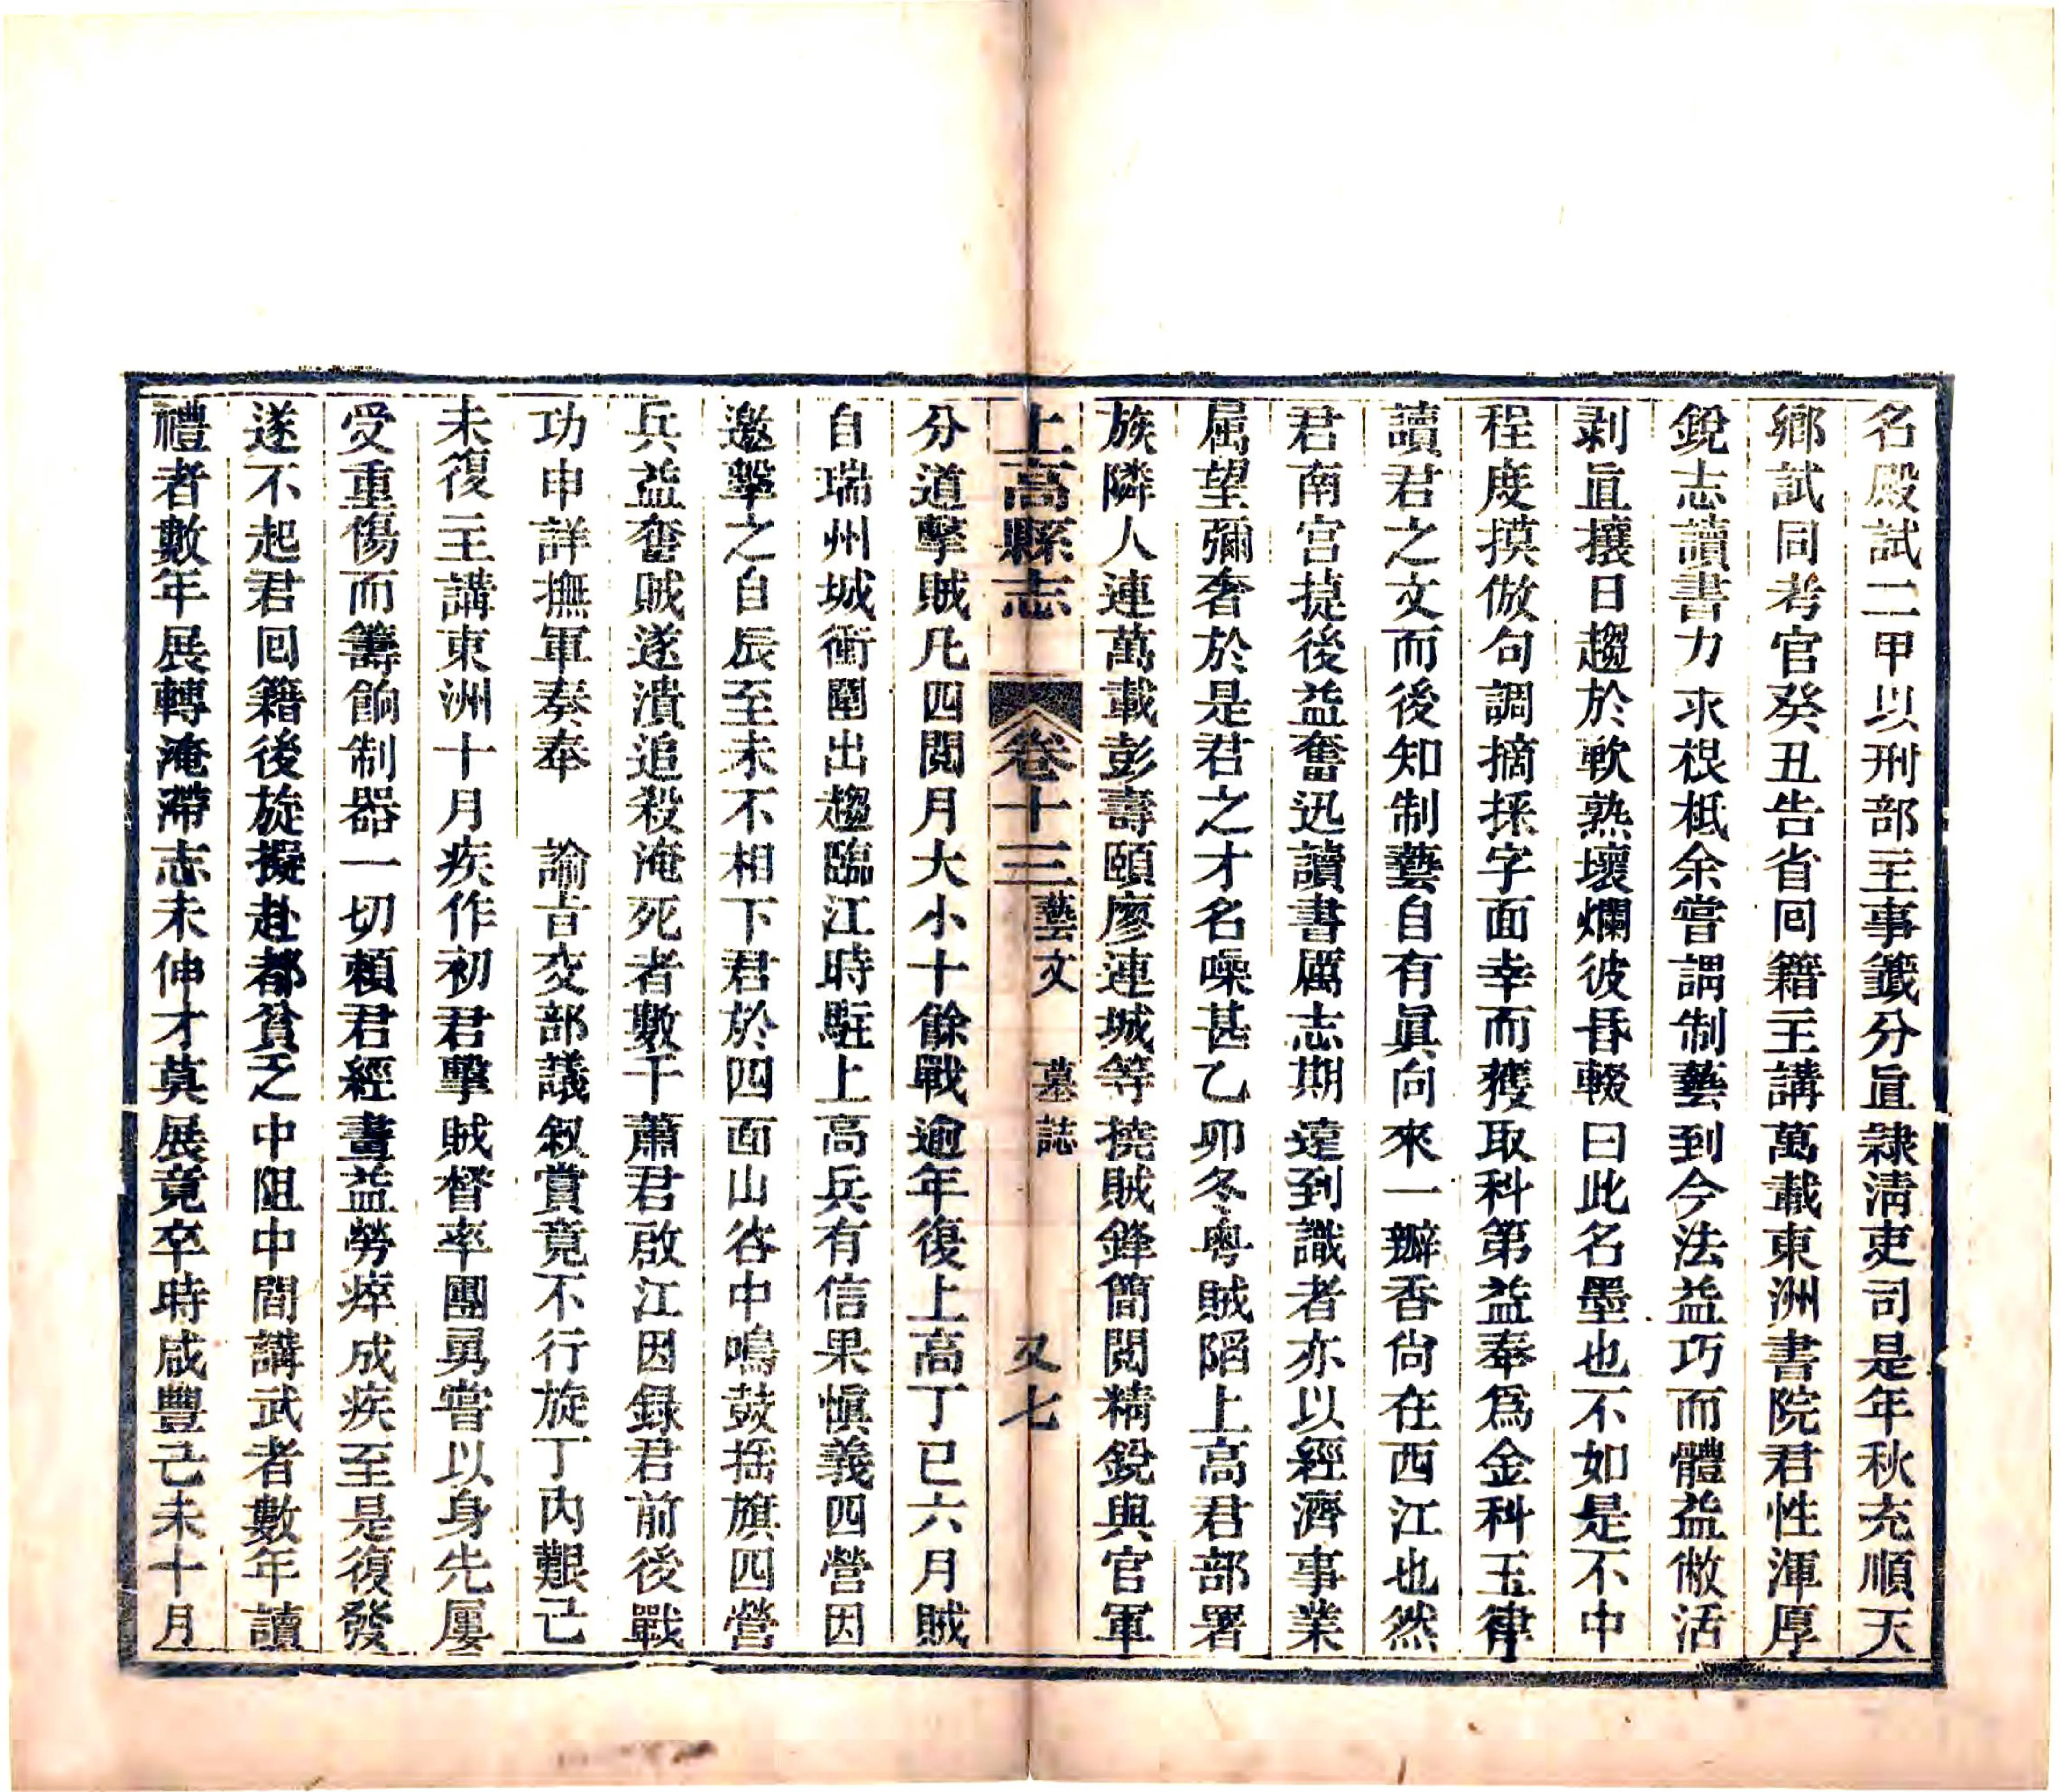 名殿試二甲以刑部主事籖分直隸清吏司是年秋充順天
鄉試同考官癸丑告省回籍主講萬載東洲書院君性渾厚
銳志讀書力求根柢余嘗謂制藝到今法益巧而體益傲活
剥眞攘日趨於軟熟壞爛彼昏輟曰此名墨也不如是不中
程度摸倣句調摘採字面幸而獲取科第益奉爲金科玉律
讀君之文而後知制藝自有眞向來一瓣香尙在西江也然
君南宫捷後益奮迅讀書厲志期遠到識者亦以經濟事業
属望彌奢於是君之才名噪甚乙卯冬粤賊陷上高君部署
族隣人連萬載彭壽頤廖連城等撓賊鋒簡閲精銳與官軍
上高縣志 卷十三 藝文 墓誌 又七
分道擊賊凡四閲月大小十餘戰逾年復上高丁巳六月賊
自瑞州城衝圍出趨臨江時駐上高兵有信果愼義四營因
邀擊之自辰至未不相下君於四面山谷中鳴鼓揺旗四營
兵益奮賊遂潰追殺淹死者數千蕭君啟江因録君前後戰
功申詳撫軍奏奉 諭旨交部議叙賞竟不行旋丁内艱己
未復主講東洲十月疾作初君擊賊督率團勇嘗以身先屢
受重傷而籌餉制器一切賴君經畫益勞瘁成疾至是復發
遂不起君回籍後旋擬赴都貧乏中阻中間講武者數年讀
禮者數年展轉淹滯志未伸才莫展竟卒時咸豐己未十月